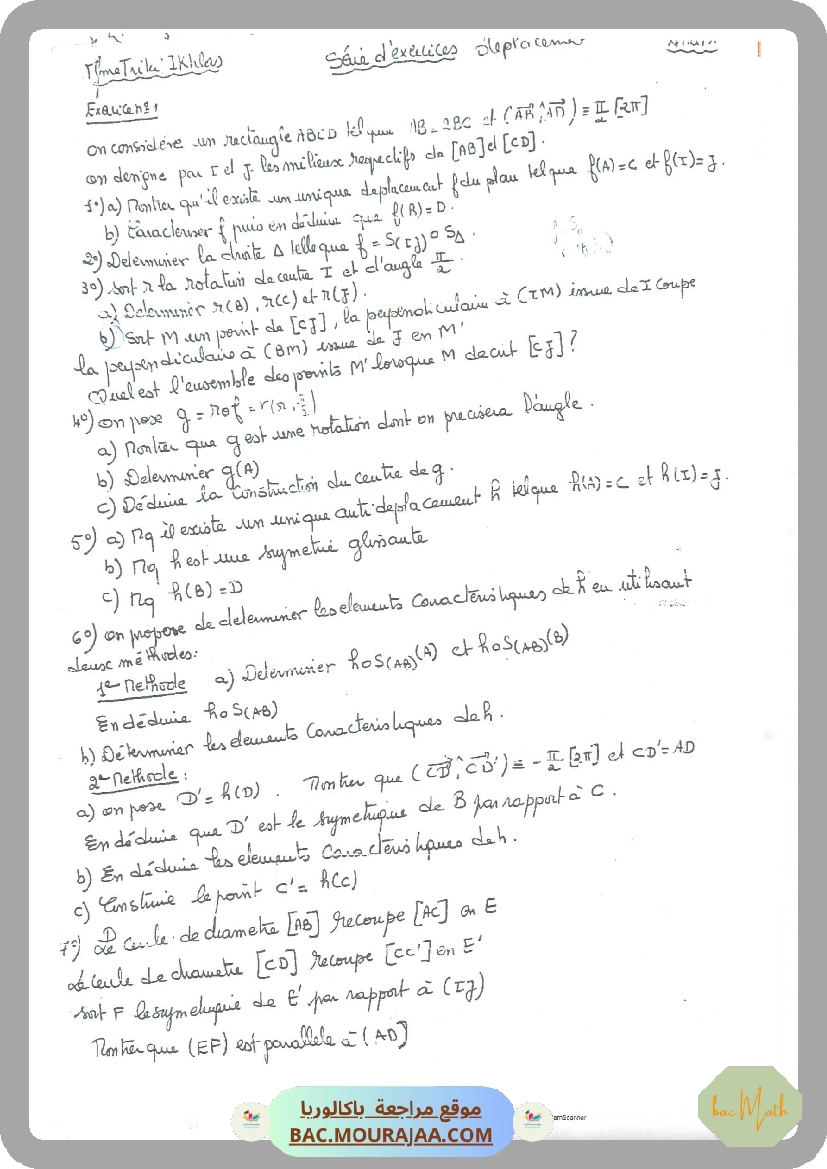 Mme Triki Ikhlas
Série d'exercices déplacement
Exercice n°1
on considère un rectangle ABCD tel que AB = 2BC et (AB, AD) ≡ π/2 [2π]
on designe par I et J les milieux respectifs de [AB] et [CD].
1°) a) Montrer qu'il existe un unique deplacement f du plan tel que f(A)=C et f(I)=J.
b) Caracteriser f puis en déduire que f(B)=D.
2°) Determiner la droite Δ telle que f = S(IJ) o SΔ.
3°) soit r la rotation de centre I et d'angle π/2.
a) Determiner r(B), r(C) et r(J).
b) Soit M un point de [CJ], la perpendiculaire à (IM) issue de I coupe
la perpendiculaire à (BM) issue de J en M'
Quel est l'ensemble des points M' lorsque M decrit [CJ] ?
4°) on pose g = rof
a) Montrer que g est une rotation dont on precisera l'angle.
b) Determiner g(A)
c) Déduire la Construction du centre de g.
5°) a) Mq il existe un unique anti deplacement h tel que h(A)=C et h(I)=J.
b) Mq h est une symetrie glissante
c) Mq h(B)=D
6°) on propose de determiner les elements Caractéristiques de h en utilisant
deux méthodes:
1ere Methode a) Determiner hoS(AB)(A) et hoS(AB)(B)
En déduire hoS(AB)
b) Déterminer les elements Caracteristiques de h.
2e Methode:
a) on pose D' = h(D). Montrer que (CB, CD') ≡ -π/2 [2π] et CD' = AD
En déduire que D' est le symetrique de B par rapport à C.
b) En déduire les elements Caractéristiques de h.
c) Construire le point C' = h(C)
7°) Le Cercle de diametre [AB] recoupe [AC] en E
Le cercle de diametre [CD] recoupe [CC'] en E'
soit F le symetrique de E' par rapport à (IJ)
Montrer que (EF) est parallele à (AD)
موقع مراجعة باكالوريا
BAC.MOURAJAA.COM
bac Math
amScanner